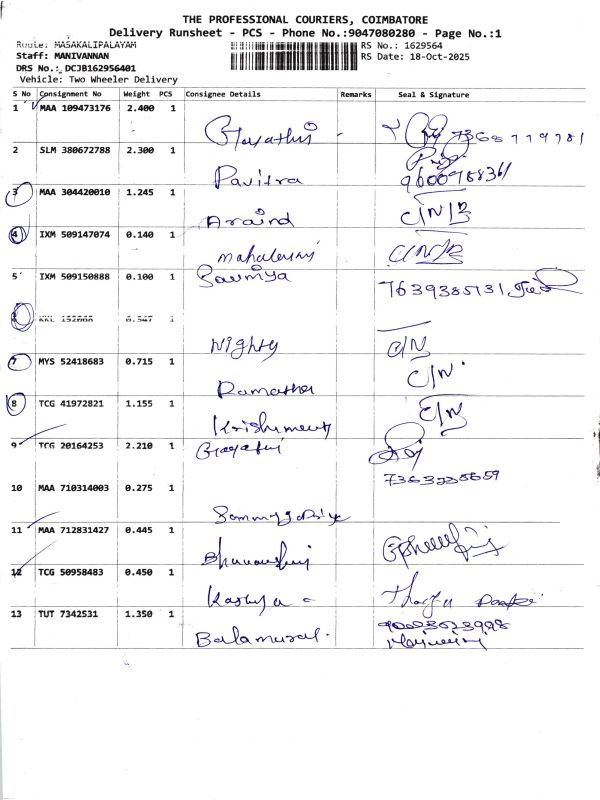 THE PROFESSIONAL COURIERS, COIMBATORE
Delivery Runsheet - PCS - Phone No.:9047080280 - Page No.:1
Route: MASAKALIPALAYAM RS No.: 1629564
Staff: MANIVANNAN RS Date: 18-Oct-2025
DRS No.: DCJB162956401
Vehicle: Two Wheeler Delivery
S No Consignment No Weight PCS Consignee Details Remarks Seal & Signature
1 MAA 109473176 2.400 1
Gayathri 7368779781
2 SLM 380672788 2.300 1
Pavitra 9600988361
3 MAA 304420010 1.245 1
Aravind C/N/R
4 IXM 509147074 0.140 1
C/N/R
5 IXM 509150888 0.100 1 Saumiya
7639385131
0.547 1
Nighty C/N
7 MYS 52418683 0.715 1
C/N
8 TCG 41972821 1.155 1
C/N
9 TCG 20164253 2.210 1 Gayatri
10 MAA 710314003 0.275 1
11 MAA 712831427 0.445 1
12 TCG 50958483 0.450 1
Kavya
13 TUT 7342531 1.350 1
Balamurali